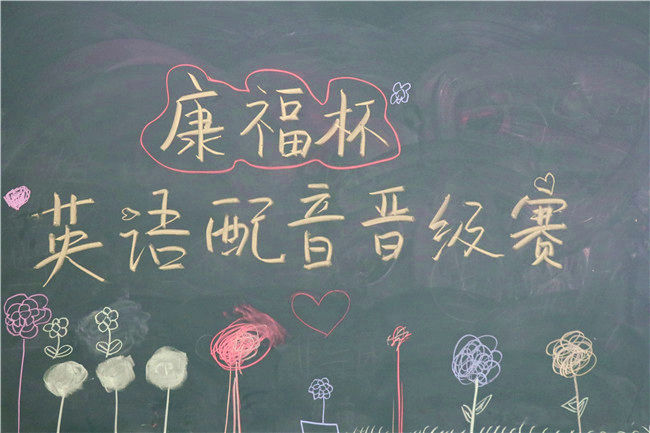 康福杯
英语配音晋级赛